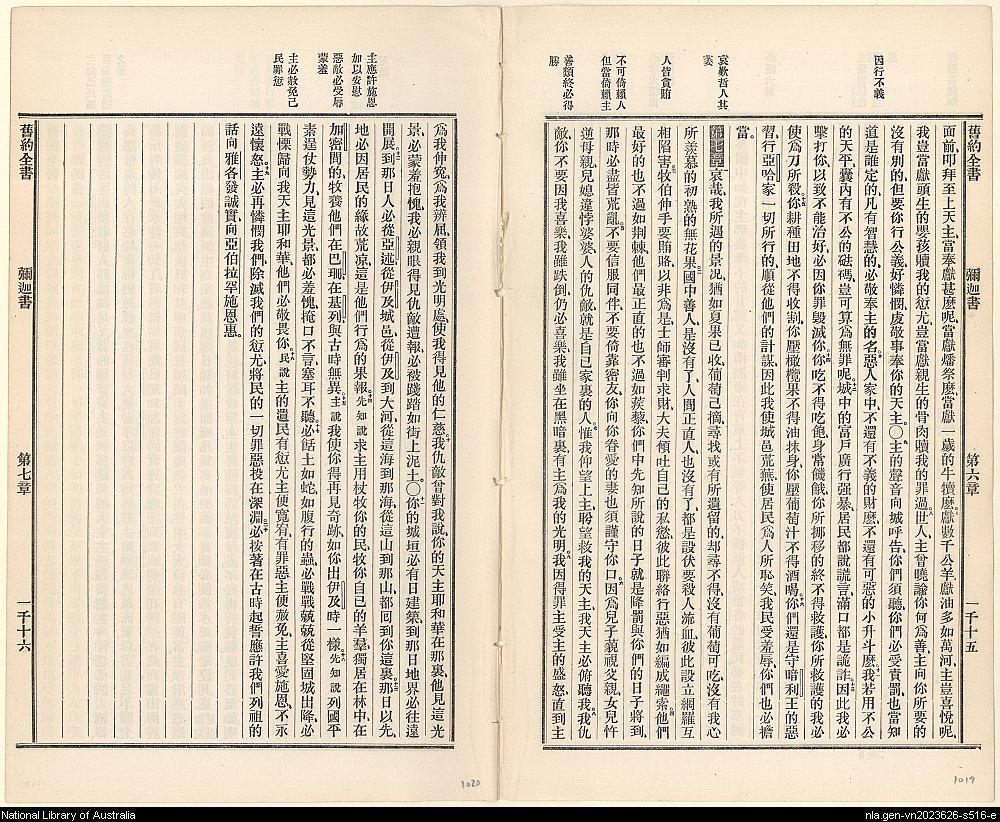 舊約全書 彌迦書 第六章 一千十五
因行不義
哀歎善人其
人皆貪賄
不可倚賴人
但當倚賴主
善類終必得
勝
面前叩拜至上天主當奉獻甚麽呢當獻燔祭麽當獻一歲的牛犢麽獻數千公羊獻油多如萬河主豈喜悅呢
我豈當獻頭生的嬰孩贖我的愆尤豈當獻親生的骨肉贖我的罪過世人主曾曉諭你何爲善主向你所要的
沒有別的但要你行公義好憐憫處敬事奉你的天主〇主的聲音向城呼告你們須聽你們必受責罰也當知
道是誰定的凡有智慧的必敬奉主的名惡人家中不還有不義的財麽不還有可惡的小升斗麽我若用不公
的天平囊內有不公的砝碼豈可算爲無罪呢城中的富戶廣行强暴居民都說謊言滿口都是詭詐因此我必
擊打你以致不能治好必因你罪毀滅你你吃不得吃飽身常饑餓你所挪移的終不得救護你所救護的我必
使爲刀所殺你耕種田地不得收割你壓橄欖果不得油抹身你壓葡萄汁不得酒喝你們還是守暗利王的惡
習行亞哈家一切所行的順從他們的計謀因此我使城邑荒蕪使居民爲人所恥笑我民受羞辱你們也必擔
當
第七章哀哉我所遇的景况猶如夏果已收葡萄已摘尋找或有所遺留的却尋不得沒有葡萄可吃沒有我心
所羨慕的初熟的無花果國中善人是沒有了人間正直人也沒有了都是設伏要殺人流血彼此設立網羅互
相陷害牧伯伸手要賄賂以非爲是士師審判求財大夫傾吐自己的私慾彼此聯絡行惡猶如編成繩索他們
最好的也不過如荆棘他們最正直的也不過如蒺藜你們中先知所說的日子就是降罰與你們的日子將到
那時必盡皆荒亂不要信服同伴不要倚靠密友你向你眷愛的妻也須謹守你口因爲兒子藐視父親女兒忤
逆母親兒媳違悖婆婆人的仇敵就是自己家裏的人惟我仰望上主聆望救我的天主我天主必俯聽我我仇
敵你不要因我喜樂我雖跌倒仍必喜樂我雖坐在黑暗裏有主爲我的光明我因得罪主受主的盛怒直到主
1019
主應許施恩
加以安慰
惡敵必受辱
蒙羞
主必赦免己
民罪愆
爲我伸冤爲我辨屈領我到光明處使我得見他的仁慈我仇敵曾對我說你的天主耶和華在那裏他見這光
景必蒙羞抱愧我必親眼得見仇敵遭報必被踐踏如街上泥土〇你的城垣必有日建築到那日地界必往遠
開展到那日人必從亞述從伊及城邑從伊及到大河從這海到那海從這山到那山都囘到你這裏那日以先
地必因居民的緣故荒凉這是他們行爲的果報先知說求主用杖牧你的民牧你自己的羊羣獨居在林中在
加密間的牧養他們在巴珊在基列與古時無異主說我使你得再見奇跡如你出伊及時一樣先知說列國平
素逞仗勢力見這光景都必羞愧掩口不言塞耳不聽必餂土如蛇如腹行的蟲必戰戰兢兢從堅固城出降必
戰慄歸向我天主耶和華他們必敬畏你民說主的遺民有愆尤主便寬宥有罪惡主便赦免主喜愛施恩不永
遠懷怒主必再憐憫我們除滅我們的愆尤將民的一切罪惡投在深淵必按著在古時起誓應許我們列祖的
話向雅各發誠實向亞伯拉罕施恩惠
舊約全書 彌迦書 第七章 一千十六
1020
National Library of Australia
nla.gen-vn2023626-s516-e